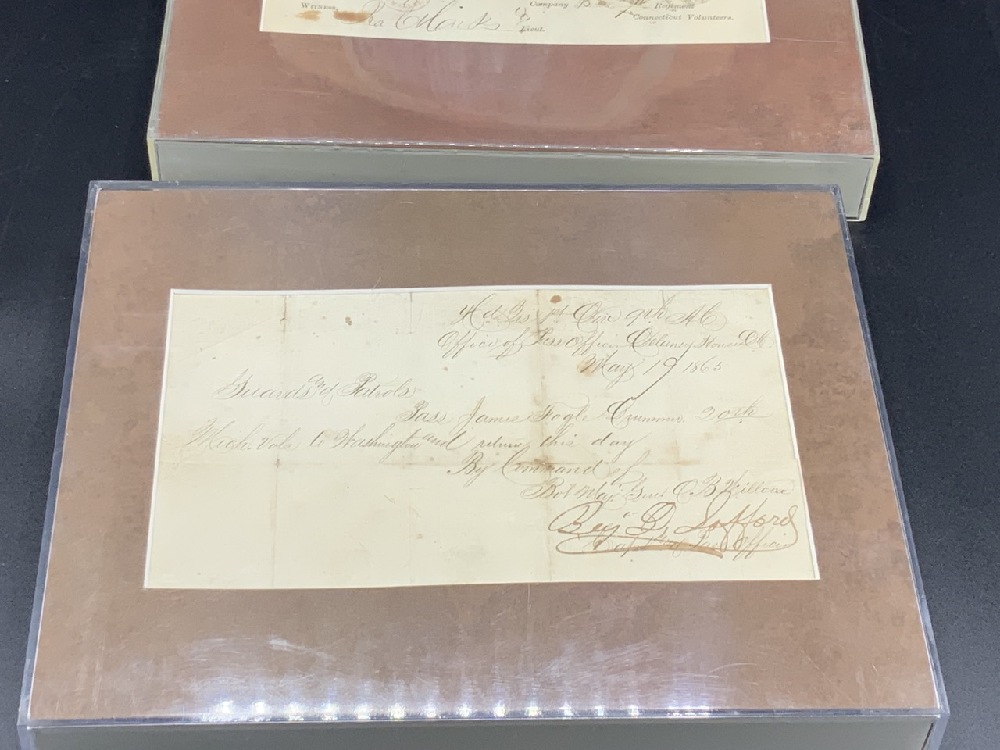 Witness, Company B Regiment
Connecticut Volunteers.
Lieut.
Hd Qrs 1st Div 9th A.C.
Office of Pass Officer Delaney House D.C.
May 19 1865
Guards & Patrols
Pass James Fogle Drummer 20th
Mich. Vols to Washington and return this day
By Command of
Bvt Maj. Gen O B Willcox
Benj D Safford
Officer